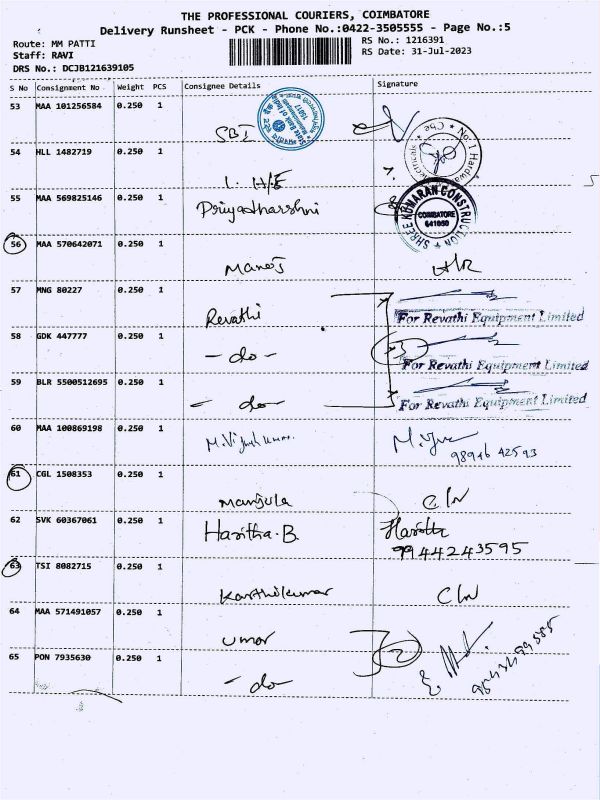 THE PROFESSIONAL COURIERS, COIMBATORE
Delivery Runsheet - PCK - Phone No.:0422-3505555 - Page No.:5
Route: MM PATTI RS No.: 1216391
Staff: RAVI RS Date: 31-Jul-2023
DRS No.: DCJB121639105
S No Consignment No Weight PCS Consignee Details Signature
53 MAA 101256584 0.250 1
SBI
State Bank of India
15017
No.1 Hardware
Cbe
54 HLL 1482719 0.250 1
1. H/E
55 MAA 569825146 0.250 1 Priyadharshni
SHREE KUMARAN CONSTRUCTION
COIMBATORE
641050
56 MAA 570642071 0.250 1
Manoj
57 MNG 80227 0.250 1
Revathi For Revathi Equipment Limited
58 GDK 447777 0.250 1
- do - 3 For Revathi Equipment Limited
59 BLR 5500512695 0.250 1
- do - For Revathi Equipment Limited
60 MAA 100869198 0.250 1
M.Vijayakumar
98946 42593
61 CGL 1508353 0.250 1
Manjula C/N
62 SVK 60367061 0.250 1 Haritha.B Haritha
9944243595
63 TSI 8082715 0.250 1
Karthikumar C/N
64 MAA 571491057 0.250 1
Umar 2
65 PON 7935630 0.250 1
- do -